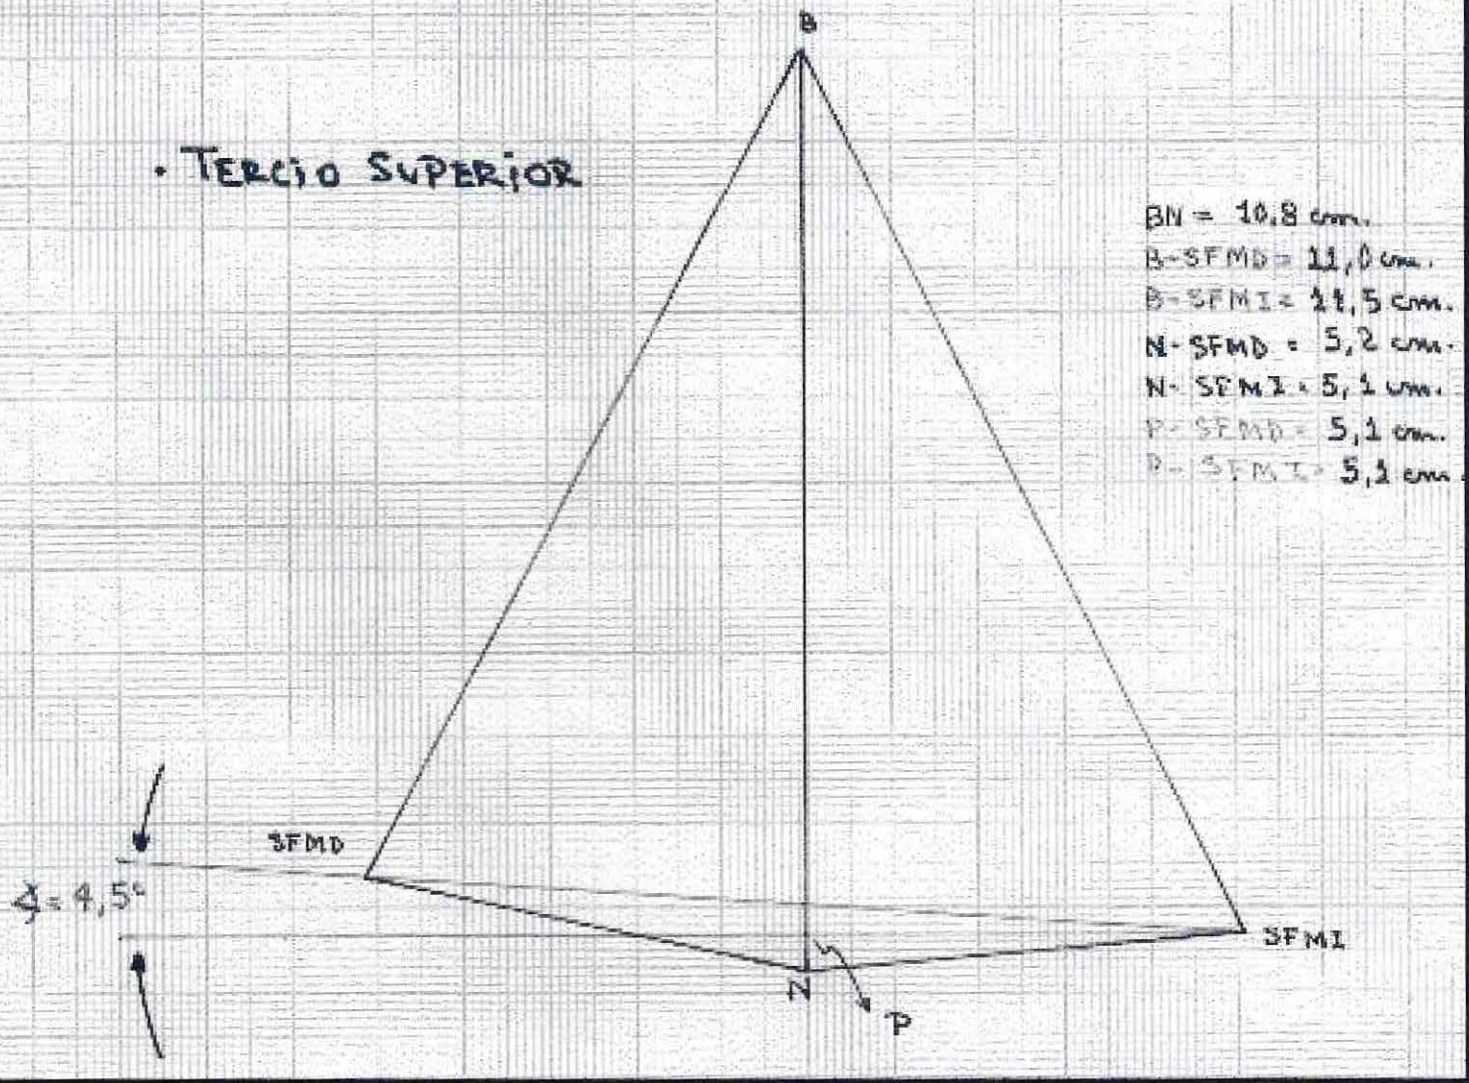 B
• TERCiO SUPERiOR
BN = 10,8 cm.
B-SFMD = 11,0 cm.
B-SFMI = 11,5 cm.
N-SFMD = 5,2 cm.
N-SFMI = 5,1 cm.
P-SFMD = 5,1 cm.
P-SFMI = 5,1 cm.
SFMD
∢ = 4,5°
SFMI
N
P